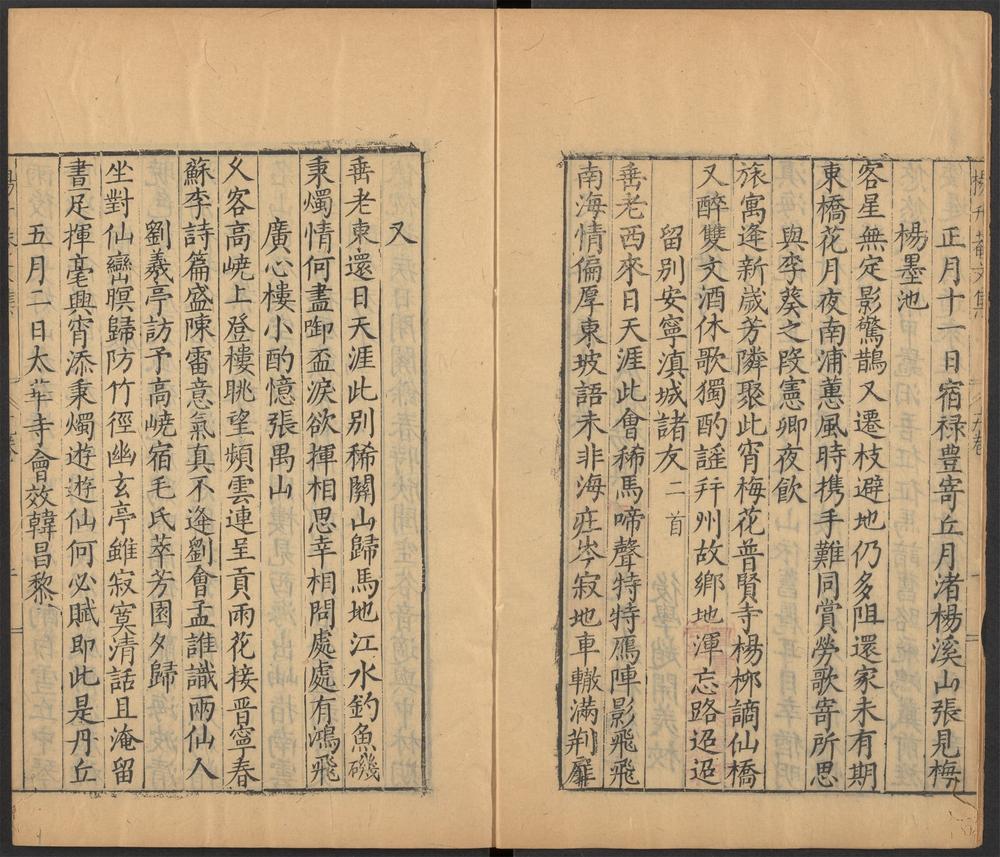 正月十一日宿禄豊寄丘月渚楊溪山張見梅
楊墨池
客星無定影驚鵲又遷枝避地仍多阻還家未有期
東橋花月夜南浦蕙風時携手難同賞勞歌寄所思
與李葵之段憲卿夜飲
旅寓逢新歲芳隣聚此宵梅花普賢寺楊柳謫仙橋
又醉雙文酒休歌獨酌謡幷州故鄉地渾忘路迢迢
留别安寧滇城諸友二首
垂老西來日天涯此會稀馬啼聲特特鴈陣影飛飛
南海情偏厚東坡語未非海庄岑寂地車轍滿荆扉
又
垂老東還日天涯此别稀關山歸馬地江水釣魚磯
秉燭情何盡啣盃淚欲揮相思幸相問處處有鴻飛
廣心樓小酌憶張禺山
久客高嶢上登樓眺望頻雲連呈貢雨花接晋寧春
蘇李詩篇盛陳雷意氣真不逢劉會孟誰識兩仙人
劉羲亭訪予高嶢宿毛氏萃芳園夕歸
坐對仙巒暝歸防竹徑幽玄亭雖寂寞清話且淹留
晝足揮毫興宵添秉燭遊遊仙何必賦即此是丹丘
五月二日太華寺會效韓昌黎